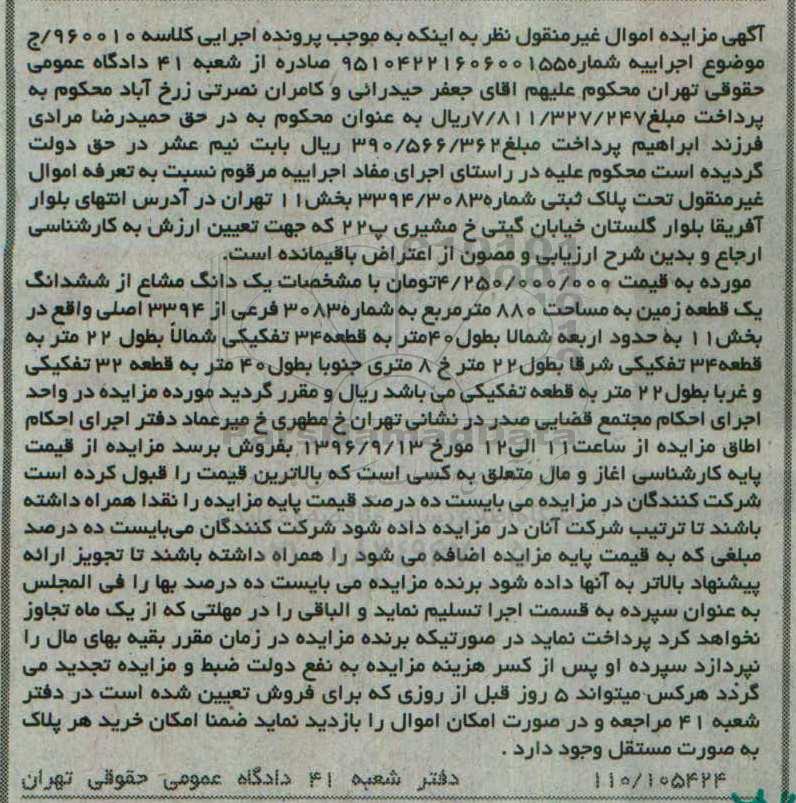 آگهی مزایده اموال غیرمنقول نظر به اینکه به موجب پرونده اجرایی کلاسه ۹۶۰۰۱۰/ج
موضوع اجراییه شماره۹۵۱۰۴۲۲۱۶۰۶۰۰۱۵۵ صادره از شعبه ۴۱ دادگاه عمومی
حقوقی تهران محکوم علیهم اقای جعفر حیدرانی و کامران نصرتی زرخ آباد محکوم به
پرداخت مبلغ۷/۸۱۱/۳۲۷/۲۴۷ریال به عنوان محکوم به در حق حمیدرضا مرادی
فرزند ابراهیم پرداخت مبلغ۳۹۰/۵۶۶/۳۶۲ ریال بابت نیم عشر در حق دولت
گردیده است محکوم علیه در راستای اجرای مفاد اجراییه مرقوم نسبت به تعرفه اموال
غیرمنقول تحت پلاک ثبتی شماره۳۳۹۴/۳۰۸۳ بخش۱۱ تهران در آدرس انتهای بلوار
آفریقا بلوار گلستان خیابان گیتی خ مشیری پ۲۲ که جهت تعیین ارزش به کارشناسی
ارجاع و بدین شرح ارزیابی و مصون از اعتراض باقیمانده است.
مورده به قیمت ۴/۲۵۰/۰۰۰/۰۰۰تومان با مشخصات یک دانگ مشاع از ششدانگ
یک قطعه زمین به مساحت ۸۸۰ مترمربع به شماره۳۰۸۳ فرعی از ۳۳۹۴ اصلی واقع در
بخش۱۱ به حدود اربعه شمالا بطول۴۰متر به قطعه۳۴ تفکیکی شمالاً بطول ۲۲ متر به
قطعه۳۴ تفکیکی شرقا بطول۲۲ متر خ ۸ متری جنوبا بطول۴۰ متر به قطعه ۳۲ تفکیکی
و غربا بطول۲۲ متر به قطعه تفکیکی می باشد ریال و مقرر گردید مورده مزایده در واحد
اجرای احکام مجتمع قضایی صدر در نشانی تهران خ مطهری خ میرعماد دفتر اجرای احکام
اطاق مزایده از ساعت۱۱ الی۱۲ مورخ ۱۳۹۶/۹/۱۳ بفروش برسد مزایده از قیمت
پایه کارشناسی اغاز و مال متعلق به کسی است که بالاترین قیمت را قبول کرده است
شرکت کنندگان در مزایده می بایست ده درصد قیمت پایه مزایده را نقدا همراه داشته
باشند تا ترتیب شرکت آنان در مزایده داده شود شرکت کنندگان می‌بایست ده درصد
مبلغی که به قیمت پایه مزایده اضافه می شود را همراه داشته باشند تا تجویز ارائه
پیشنهاد بالاتر به آنها داده شود برنده مزایده می بایست ده درصد بها را فی المجلس
به عنوان سپرده به قسمت اجرا تسلیم نماید و الباقی را در مهلتی که از یک ماه تجاوز
نخواهد کرد پرداخت نماید در صورتیکه برنده مزایده در زمان مقرر بقیه بهای مال را
نپردازد سپرده او پس از کسر هزینه مزایده به نفع دولت ضبط و مزایده تجدید می
گردد هرکس میتواند ۵ روز قبل از روزی که برای فروش تعیین شده است در دفتر
شعبه ۴۱ مراجعه و در صورت امکان اموال را بازدید نماید ضمنا امکان خرید هر پلاک
به صورت مستقل وجود دارد .
۱۱۰/۱۰۵۴۲۴ دفتر شعبه ۴۱ دادگاه عمومی حقوقی تهران